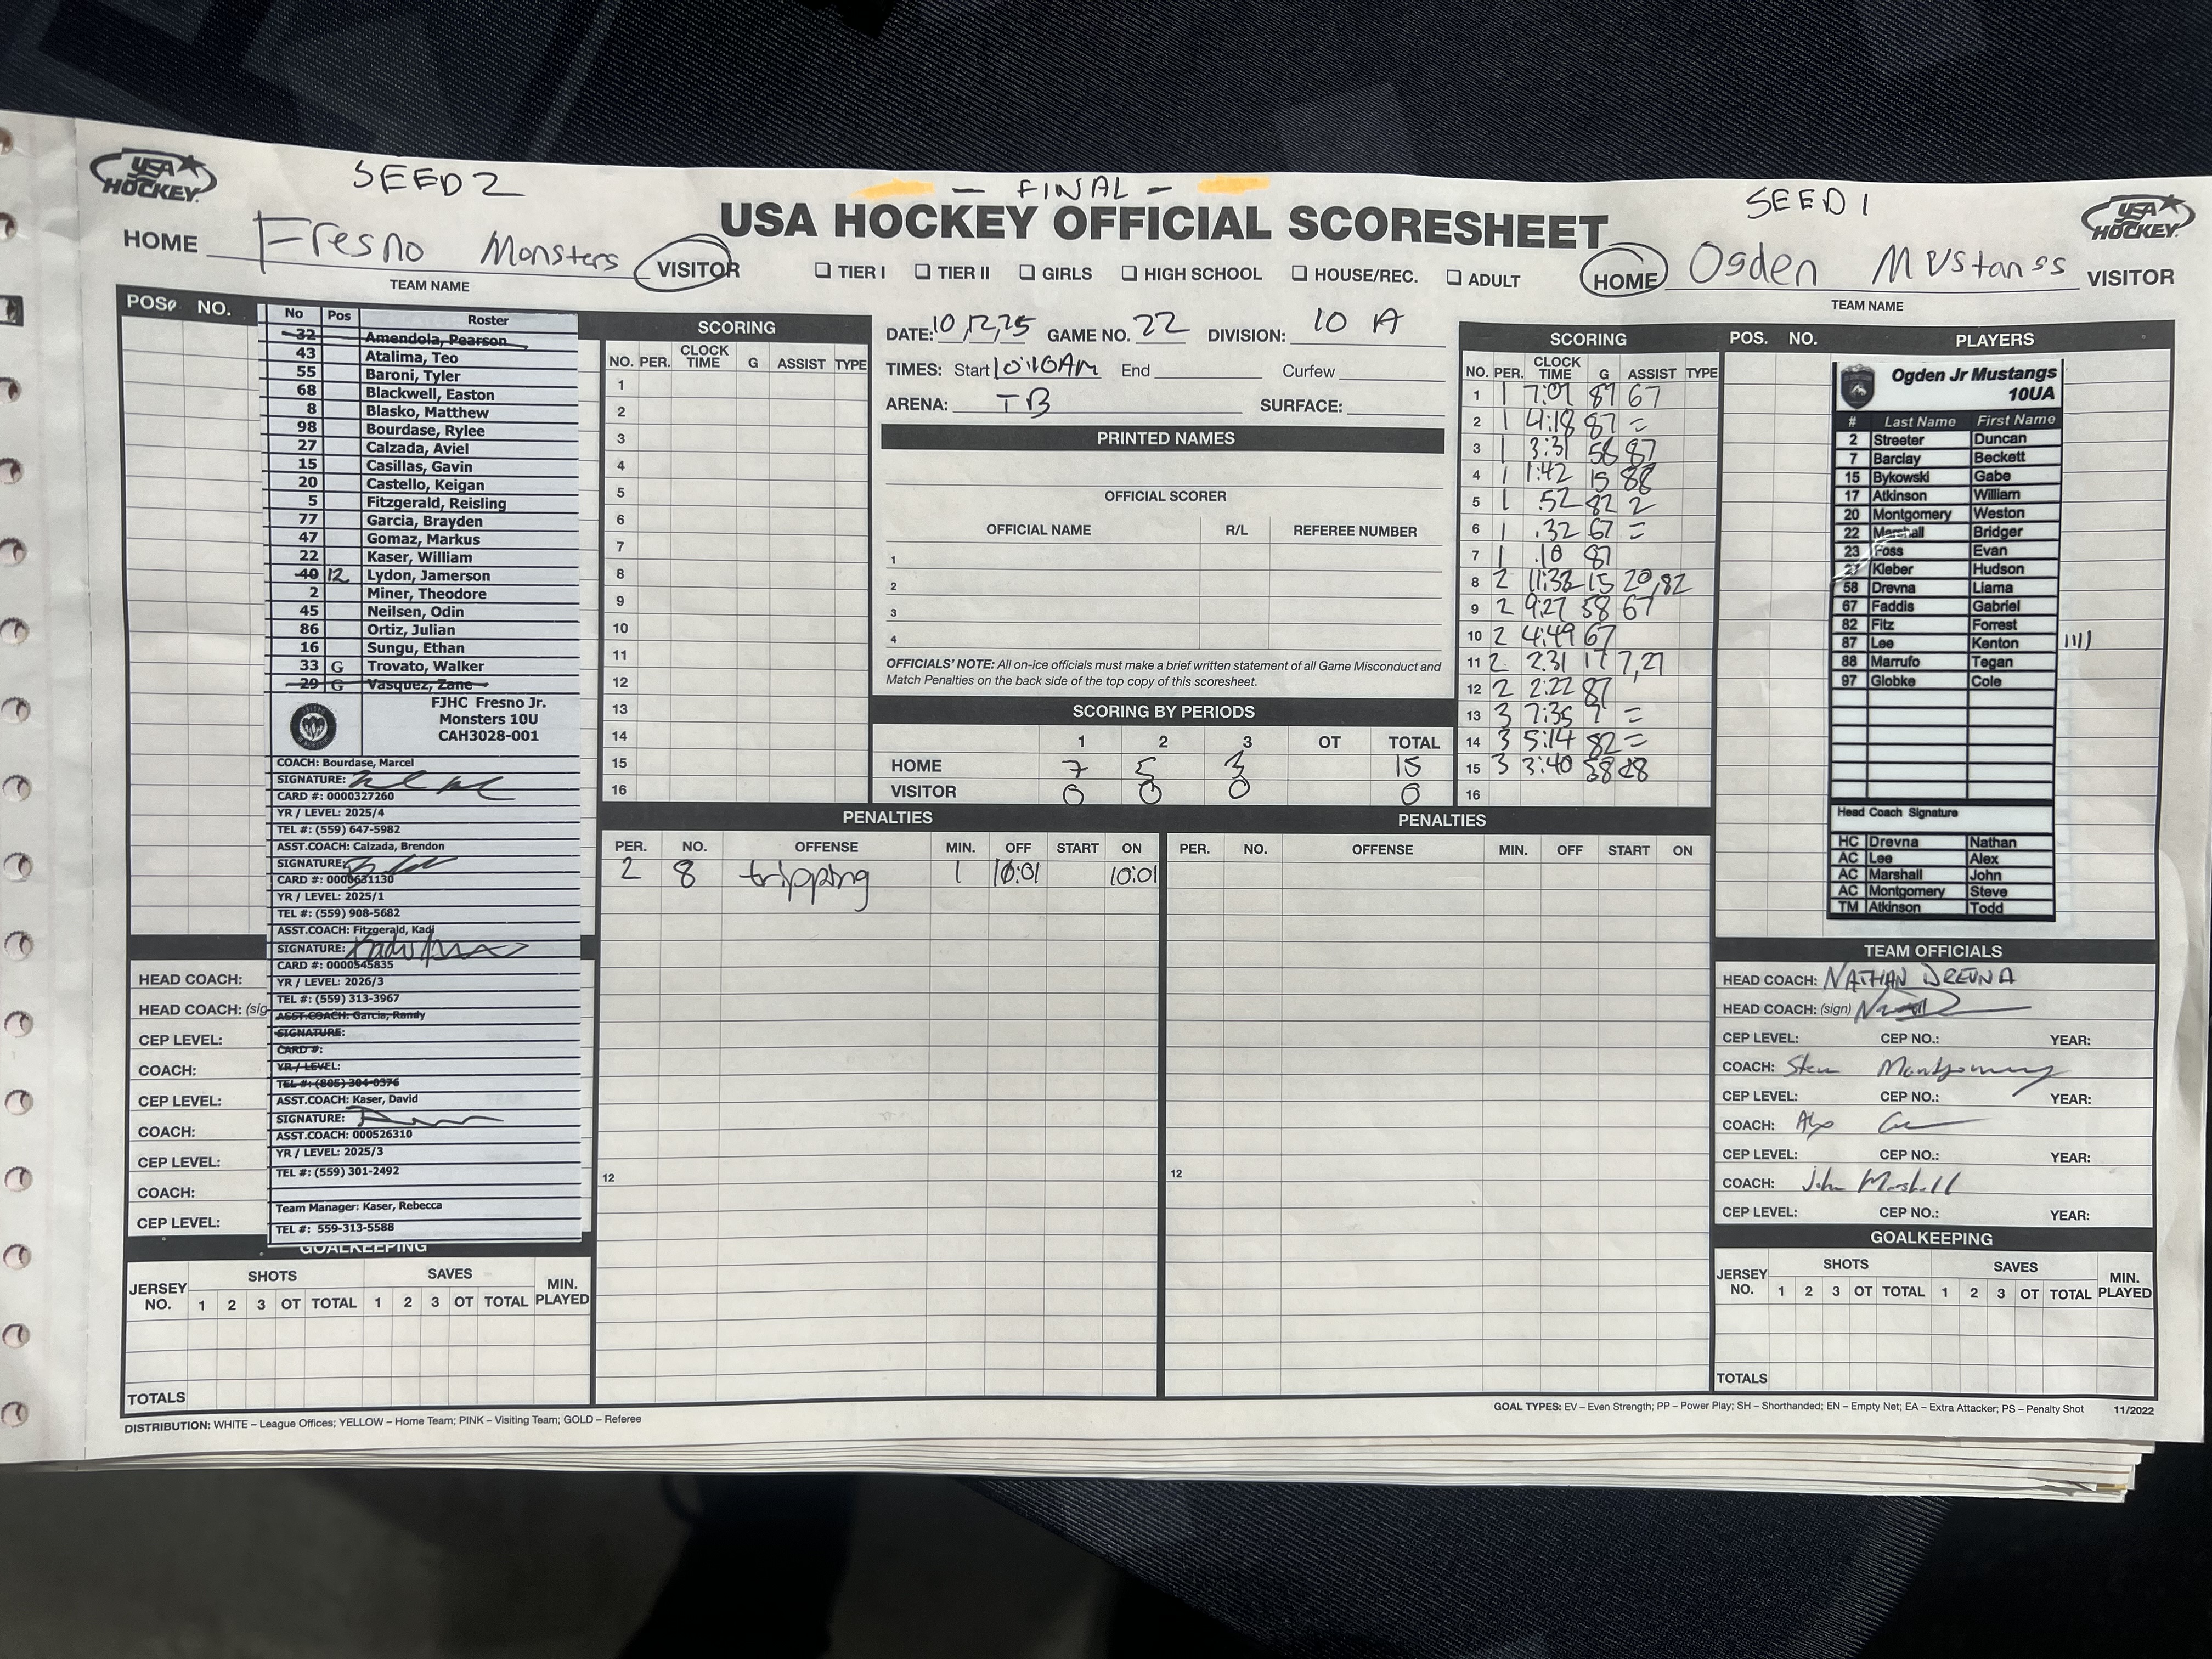 SEED 2
- FINAL -
SEED 1
USA HOCKEY
USA HOCKEY OFFICIAL SCORESHEET
USA HOCKEY
HOME Fresno Monsters VISITOR
TEAM NAME
☐ TIER I ☐ TIER II ☐ GIRLS ☐ HIGH SCHOOL ☐ HOUSE/REC. ☐ ADULT
HOME Ogden Mustangs VISITOR
TEAM NAME
POS. NO.
No Pos Roster
32 Amendola, Pearson
43 Atalima, Teo
55 Baroni, Tyler
68 Blackwell, Easton
8 Blasko, Matthew
98 Bourdase, Rylee
27 Calzada, Aviel
15 Casillas, Gavin
20 Castello, Keigan
5 Fitzgerald, Reisling
77 Garcia, Brayden
47 Gomaz, Markus
22 Kaser, William
40 12 Lydon, Jamerson
2 Miner, Theodore
45 Neilsen, Odin
86 Ortiz, Julian
16 Sungu, Ethan
33 G Trovato, Walker
29 G Vasquez, Zane
FJHC Fresno Jr.
Monsters 10U
CAH3028-001
COACH: Bourdase, Marcel
SIGNATURE:
CARD #: 0000327260
YR / LEVEL: 2025/4
TEL #: (559) 647-5982
ASST.COACH: Calzada, Brendon
SIGNATURE:
CARD #: 0000631130
YR / LEVEL: 2025/1
TEL #: (559) 908-5682
ASST.COACH: Fitzgerald, Kadi
SIGNATURE:
CARD #: 0000545835
YR / LEVEL: 2026/3
TEL #: (559) 313-3967
ASST.COACH: Garcia, Randy
SIGNATURE:
CARD #:
YR / LEVEL:
TEL #: (805) 304-0376
ASST.COACH: Kaser, David
SIGNATURE:
ASST.COACH: 000526310
YR / LEVEL: 2025/3
TEL #: (559) 301-2492
Team Manager: Kaser, Rebecca
TEL #: 559-313-5588
HEAD COACH:
HEAD COACH: (sig
CEP LEVEL:
COACH:
CEP LEVEL:
COACH:
CEP LEVEL:
COACH:
CEP LEVEL:
GOALKEEPING
JERSEY NO. SHOTS SAVES MIN. PLAYED
1 2 3 OT TOTAL 1 2 3 OT TOTAL
TOTALS
SCORING
NO. PER. CLOCK TIME G ASSIST TYPE
1
2
3
4
5
6
7
8
9
10
11
12
13
14
15
16
DATE: 10/12/25 GAME NO. 22 DIVISION: 10 A
TIMES: Start 10:10AM End Curfew
ARENA: TB SURFACE:
PRINTED NAMES
OFFICIAL SCORER
OFFICIAL NAME R/L REFEREE NUMBER
1
2
3
4
OFFICIALS' NOTE: All on-ice officials must make a brief written statement of all Game Misconduct and
Match Penalties on the back side of the top copy of this scoresheet.
SCORING BY PERIODS
1 2 3 OT TOTAL
HOME 7 5 3 15
VISITOR 0 0 0 0
SCORING
NO. PER. CLOCK TIME G ASSIST TYPE
1 1 7:07 87 67
2 1 4:18 87 =
3 1 3:31 58 87
4 1 1:42 15 88
5 1 .52 82 2
6 1 .32 67 =
7 1 .10 87
8 2 11:38 15 20,82
9 2 9:27 58 67
10 2 4:49 67
11 2 2:31 17 7,27
12 2 2:22 87
13 3 7:35 7 =
14 3 5:14 82 =
15 3 3:40 58
16
PENALTIES
PER. NO. OFFENSE MIN. OFF START ON
2 8 tripping 1 10:01 10:01
12
PENALTIES
PER. NO. OFFENSE MIN. OFF START ON
12
POS. NO. PLAYERS
Ogden Jr Mustangs
10UA
# Last Name First Name
2 Streeter Duncan
7 Barclay Beckett
15 Bykowski Gabe
17 Atkinson William
20 Montgomery Weston
22 Marshall Bridger
23 Foss Evan
27 Kleber Hudson
58 Drevna Liama
67 Faddis Gabriel
82 Fitz Forrest
87 Lee Kenton IIII
88 Marrufo Tegan
97 Globke Cole
Head Coach Signature
HC Drevna Nathan
AC Lee Alex
AC Marshall John
AC Montgomery Steve
TM Atkinson Todd
TEAM OFFICIALS
HEAD COACH: NATHAN DREVNA
HEAD COACH: (sign)
CEP LEVEL: CEP NO.: YEAR:
COACH: Steve Montgomery
CEP LEVEL: CEP NO.: YEAR:
COACH:
CEP LEVEL: CEP NO.: YEAR:
COACH: John Marshall
CEP LEVEL: CEP NO.: YEAR:
GOALKEEPING
JERSEY NO. SHOTS SAVES MIN. PLAYED
1 2 3 OT TOTAL 1 2 3 OT TOTAL
TOTALS
DISTRIBUTION: WHITE – League Offices; YELLOW – Home Team; PINK – Visiting Team; GOLD – Referee
GOAL TYPES: EV – Even Strength; PP – Power Play; SH – Shorthanded; EN – Empty Net; EA – Extra Attacker; PS – Penalty Shot 11/2022